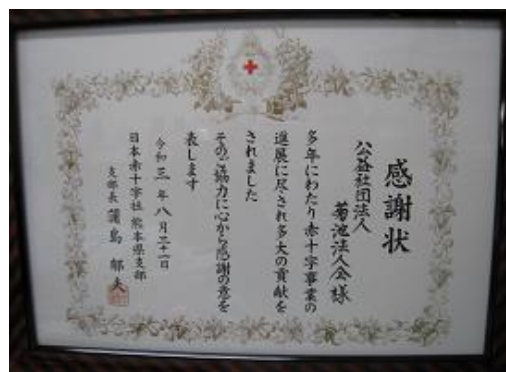 感謝状
公益社団法人
菊池法人会様
多年にわたり赤十字事業の
進展に尽され多大の貢献を
されました
そのご協力に心から感謝の意を
表します
令和三年八月三十一日
日本赤十字社 熊本県支部
支部長 蒲島 郁夫